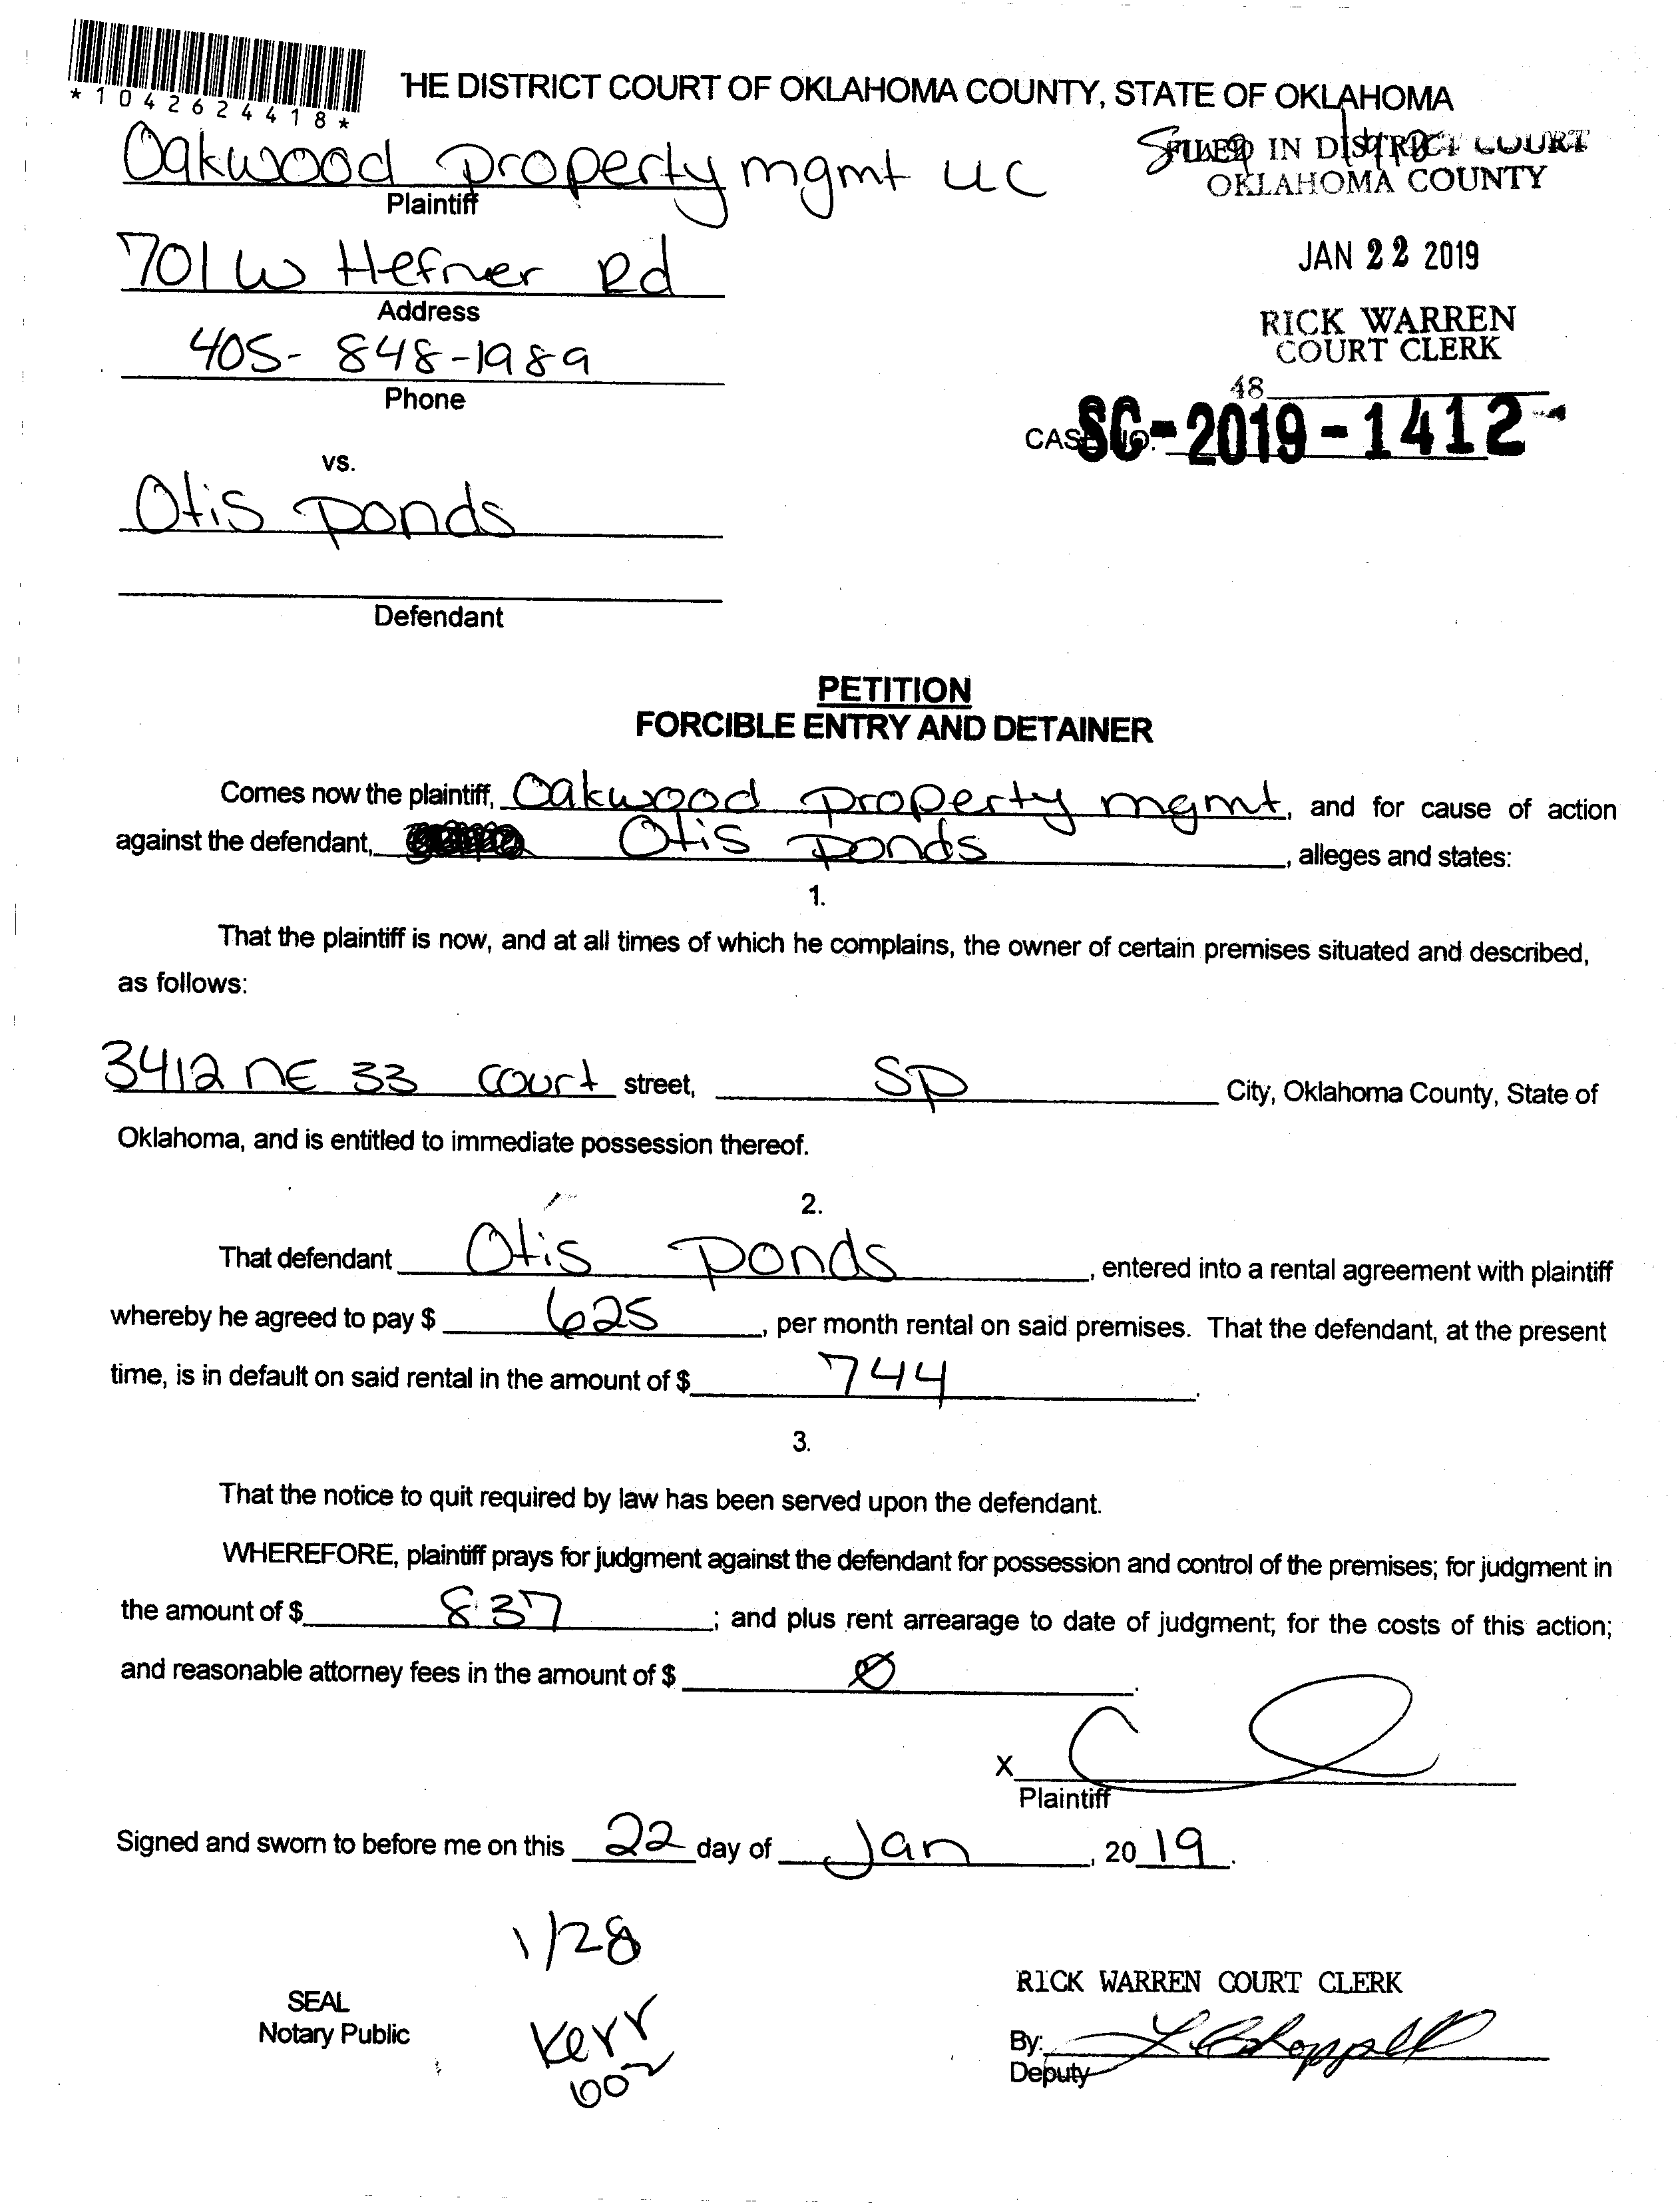 *1042624418*
THE DISTRICT COURT OF OKLAHOMA COUNTY, STATE OF OKLAHOMA
Oakwood property mgmt LLC
Plaintiff
FILED IN DISTRICT COURT
OKLAHOMA COUNTY
701 W Hefner Rd
Address
JAN 22 2019
405-848-1989
Phone
RICK WARREN
COURT CLERK
48
CASE NO. SC-2019-1412
vs.
Otis ponds
Defendant
PETITION
FORCIBLE ENTRY AND DETAINER
Comes now the plaintiff, Oakwood property mgmt, and for cause of action
against the defendant, Otis ponds, alleges and states:
1.
That the plaintiff is now, and at all times of which he complains, the owner of certain premises situated and described,
as follows:
3412 NE 33 court street, SP City, Oklahoma County, State of
Oklahoma, and is entitled to immediate possession thereof.
2.
That defendant Otis ponds, entered into a rental agreement with plaintiff
whereby he agreed to pay $ 625, per month rental on said premises. That the defendant, at the present
time, is in default on said rental in the amount of $ 744.
3.
That the notice to quit required by law has been served upon the defendant.
WHEREFORE, plaintiff prays for judgment against the defendant for possession and control of the premises; for judgment in
the amount of $ 837; and plus rent arrearage to date of judgment; for the costs of this action;
and reasonable attorney fees in the amount of $ 0.
X
Plaintiff
Signed and sworn to before me on this 22 day of Jan, 2019.
1/28
SEAL
Notary Public
Kerr
602
RICK WARREN COURT CLERK
By:
Deputy